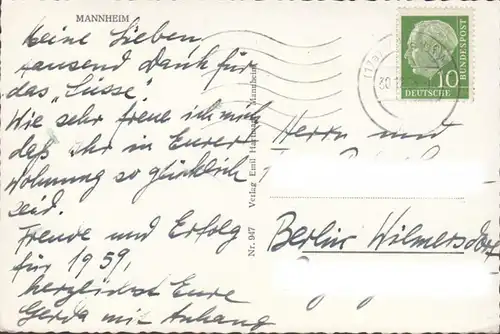 MANNHEIM
Meine Lieben.
tausend Dank für
das "Süsse".
Wie sehr freue ich mich
daß ihr in Eurer
Wohnung so glücklich
seid.
Freude und Erfolg
für 1959,
herzlichst Eure
Gerda mit Anhang
Nr. 947 Verlag Emil Mannheim
30
10
DEUTSCHE
BUNDESPOST
Herrn und
Berlin Wilmersdorf